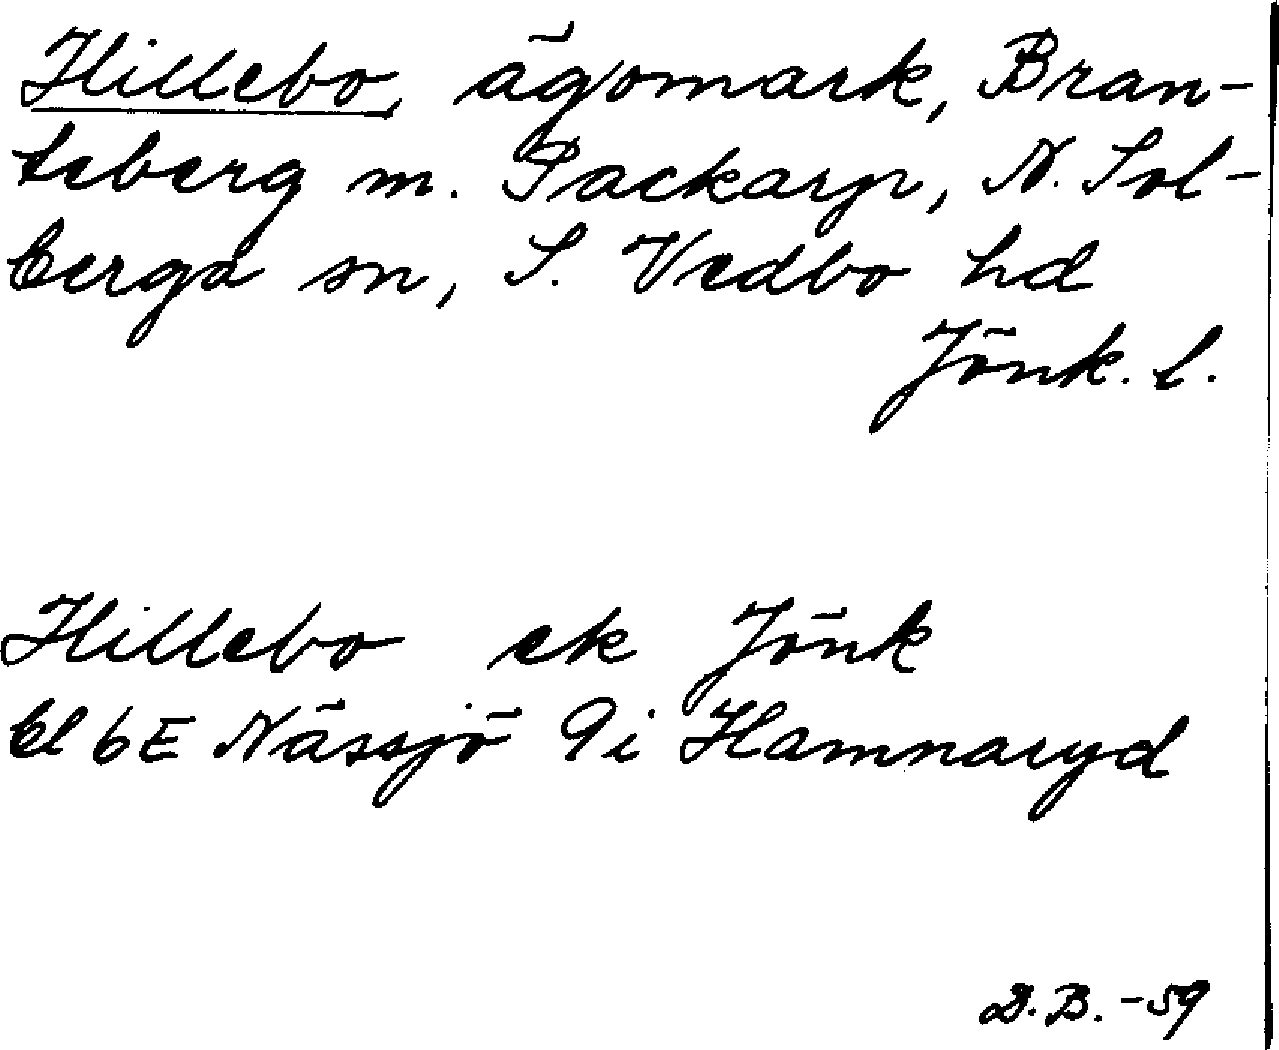 Hillebo, ägomark, Bran-
teberg m. Packarp, N. Sol-
berga sn, S. Vedbo hd
Jönk. l.
Hillebo ek Jönk
bl 6E Nässjö 9i Hamnaryd
D.B. -59